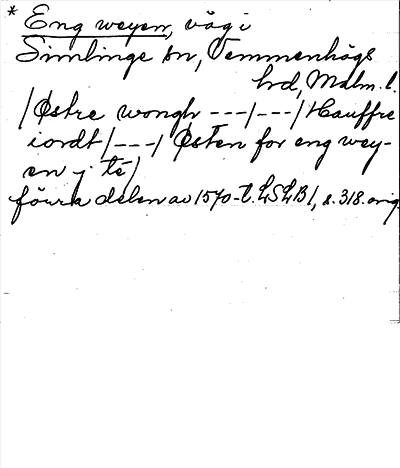 * Eng weyen, väg i
Simlinge sn, Vemmenhögs
hrd, Malm. l.
/Østre wongh ---/---/Hauffre
iordt/---/ Østen for eng wey-
en j té/
förra delen av 1570-t. LSLB1, s. 318. orig.